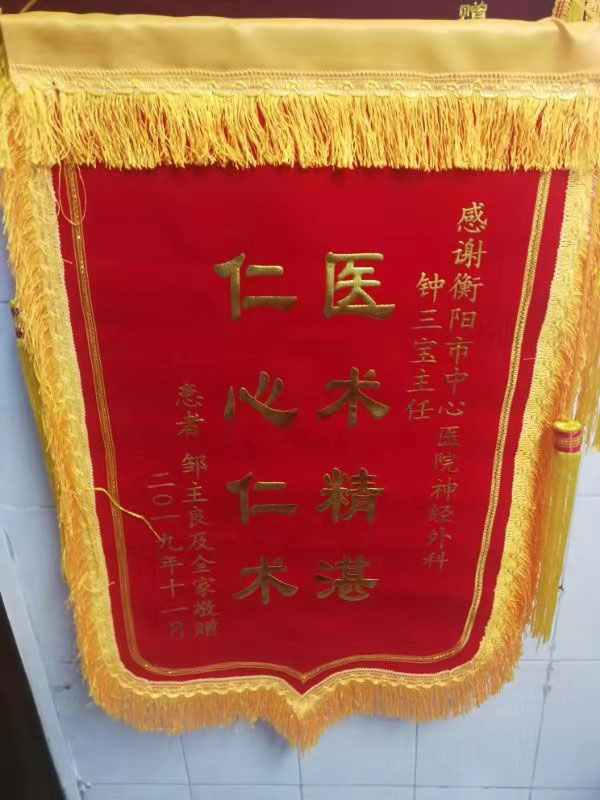 赠
感谢衡阳市中心医院神经外科
钟三宝主任
医术精湛
仁心仁术
患者 邹主良及全家敬赠
二〇一九年十一月